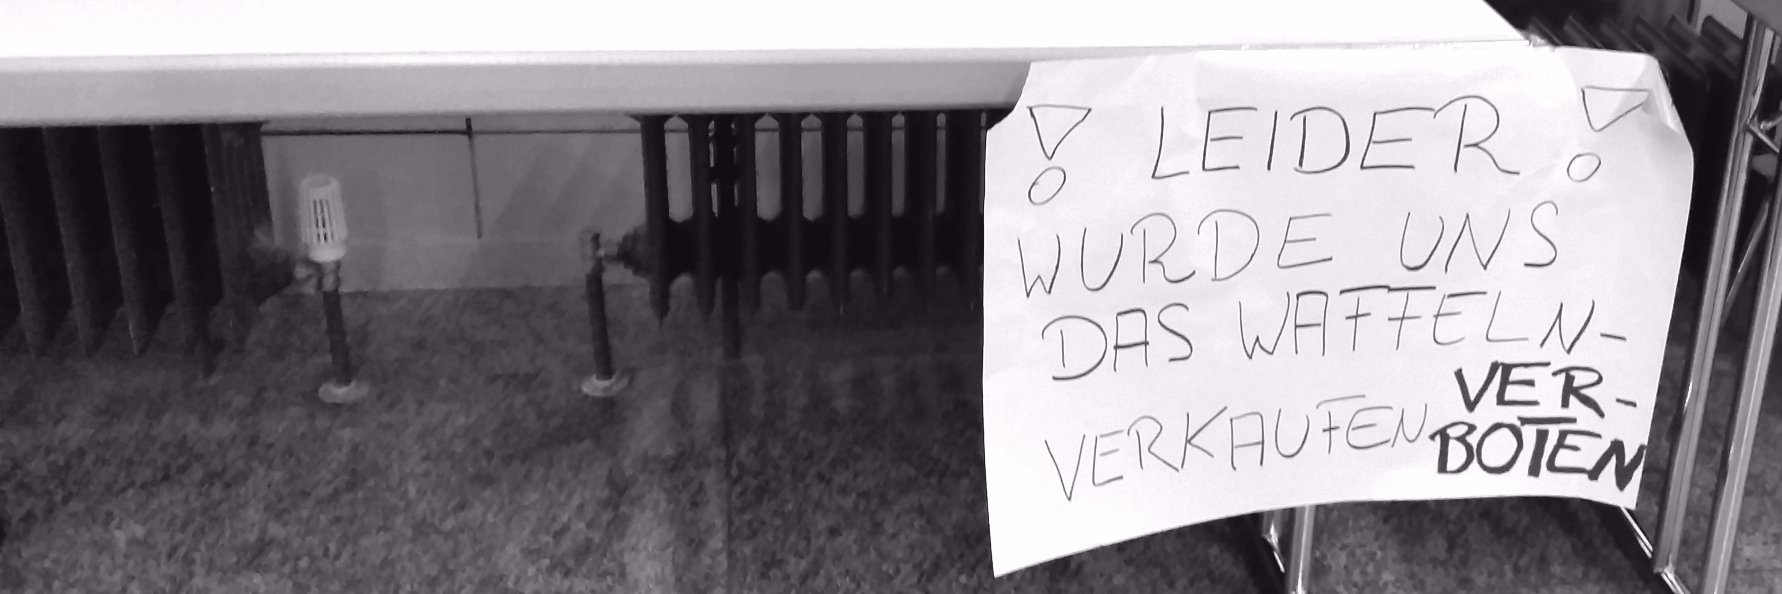 ! LEIDER !
WURDE UNS
DAS WAFFELN-
VERKAUFEN VER-
BOTEN